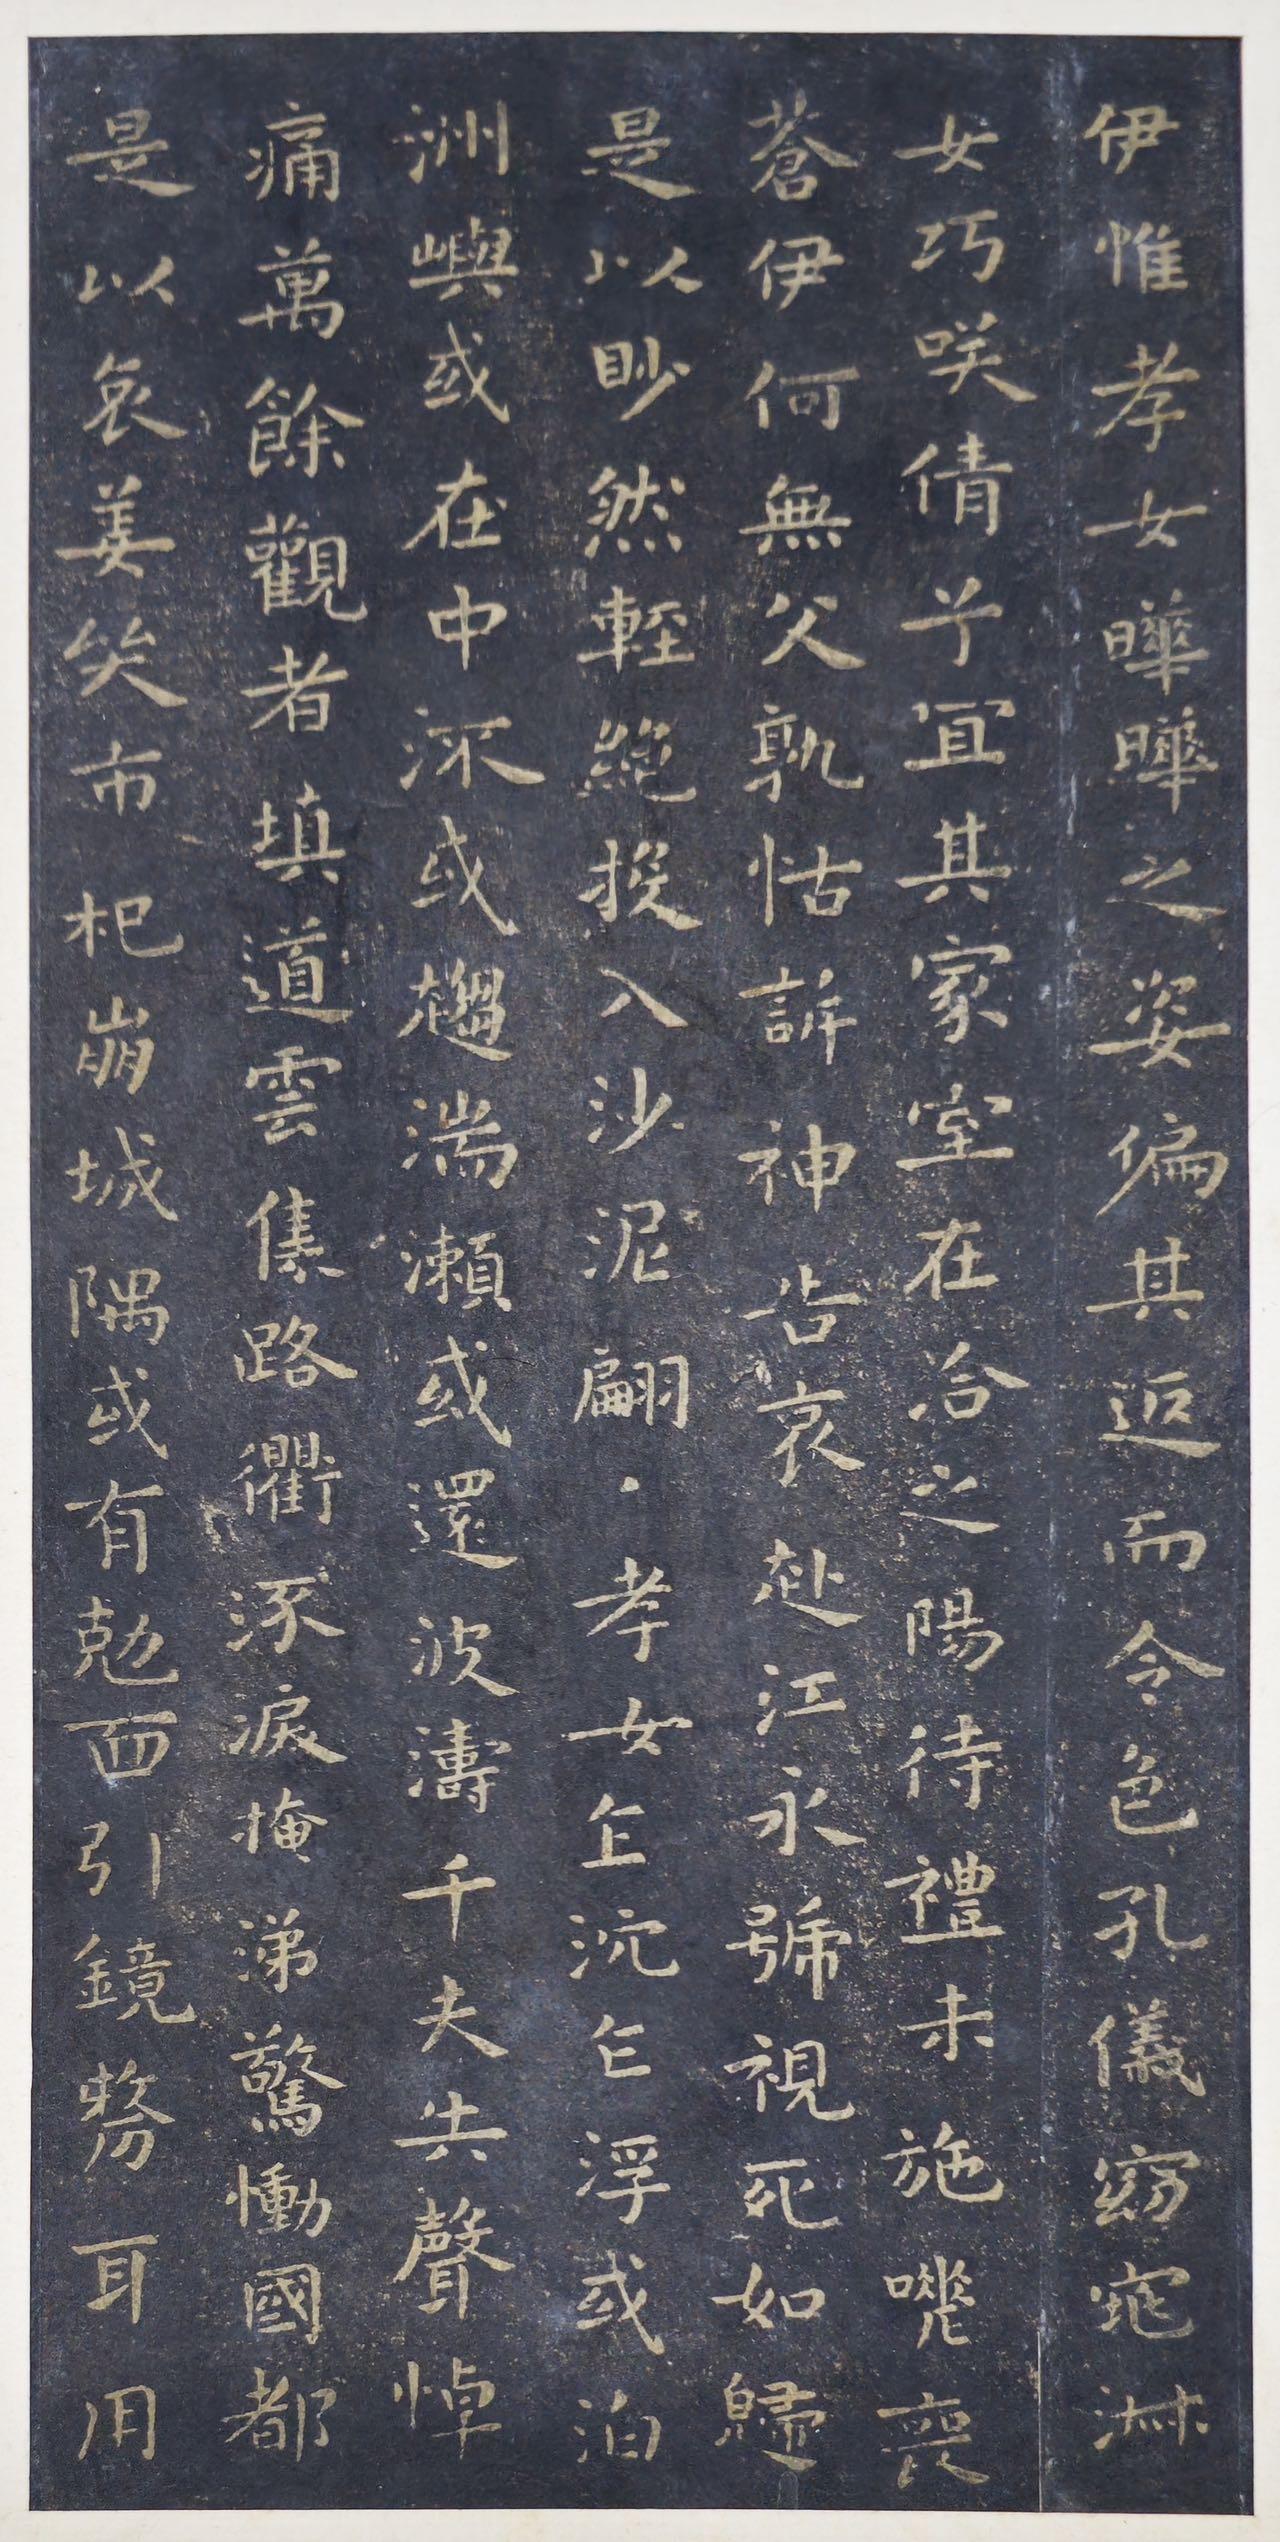 伊惟孝女曄曄之姿偏其返而令色孔儀窈窕淑
女巧咲倩兮宜其家室在洽之陽待禮未施嗟喪
蒼伊何無父孰怙訴神告哀赴江永號視死如歸
是以眇然輕絕投入沙泥翩〻孝女乍沉乍浮或泊
洲嶼或在中流或趨湍瀨或還波濤千夫失聲悼
痛萬餘觀者填道雲集路衢泳淚掩涕驚慟國都
是以哀姜哭市杞崩城隅或有勊面引鏡剺耳用